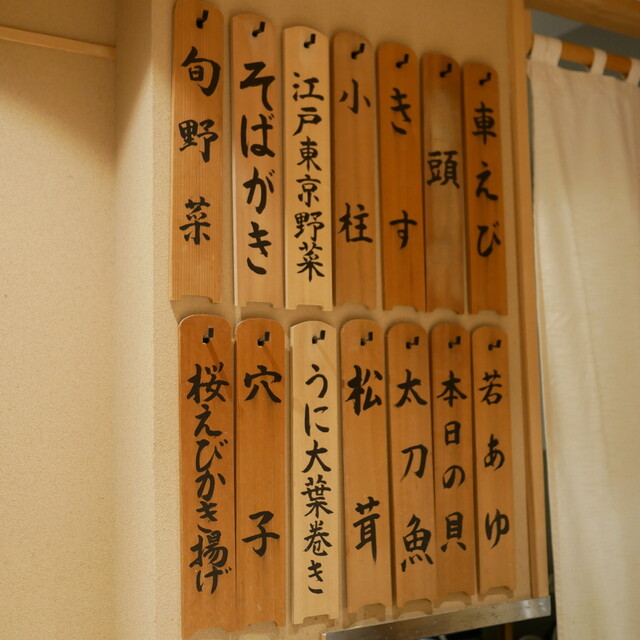 車えび
頭
きす
小柱
江戸東京野菜
そばがき
旬野菜
若あゆ
本日の貝
太刀魚
松茸
うに大葉巻き
穴子
桜えびかき揚げ